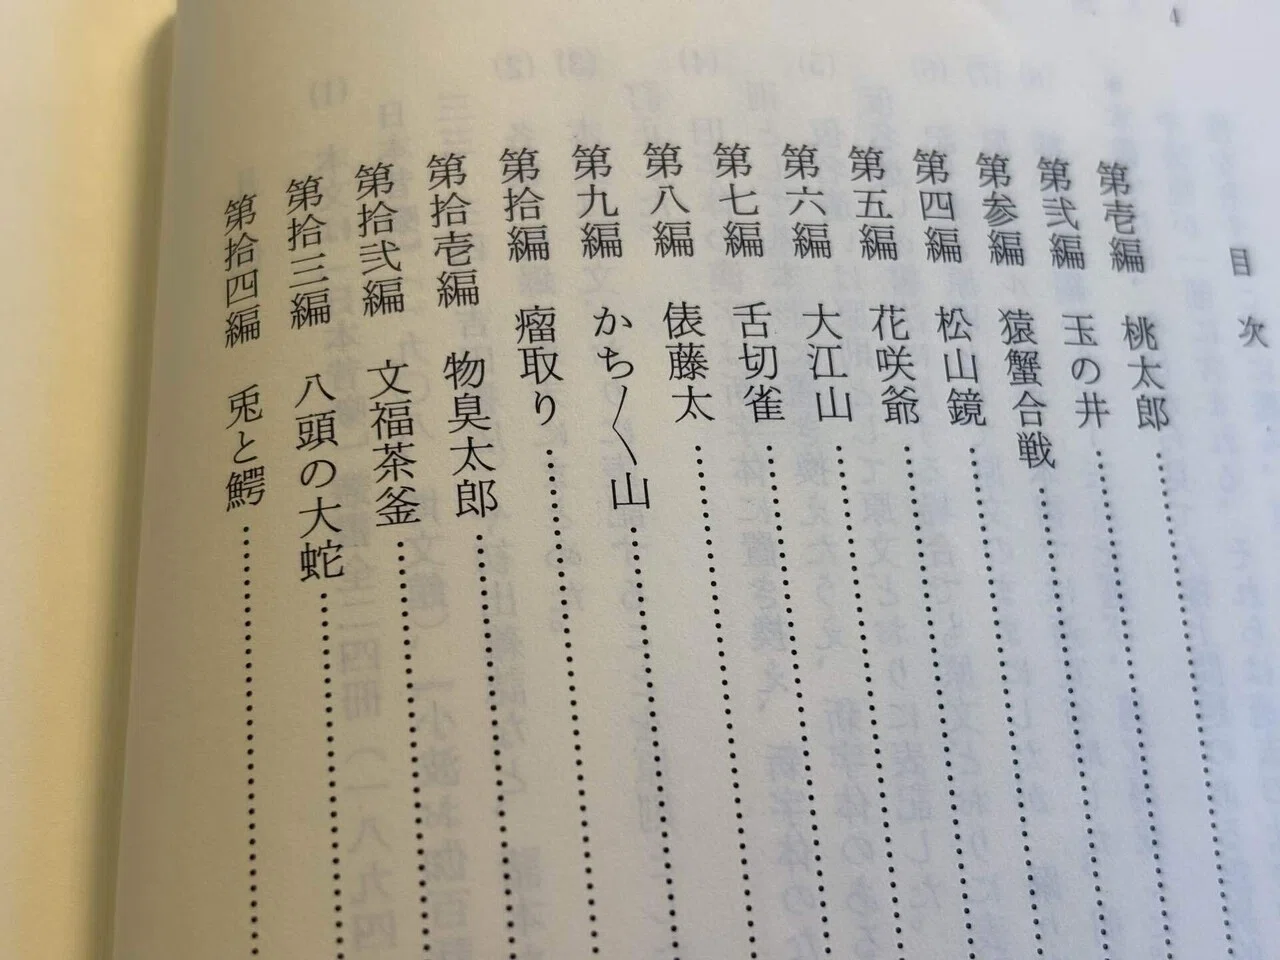 4
目次
第壱編 桃太郎
第弐編 玉の井
第参編 猿蟹合戦
第四編 松山鏡
第五編 花咲爺
第六編 大江山
第七編 舌切雀
第八編 俵藤太
第九編 かち〱山
第拾編 瘤取り
第拾壱編 物臭太郎
第拾弐編 文福茶釜
第拾三編 八頭の大蛇
第拾四編 兎と鰐